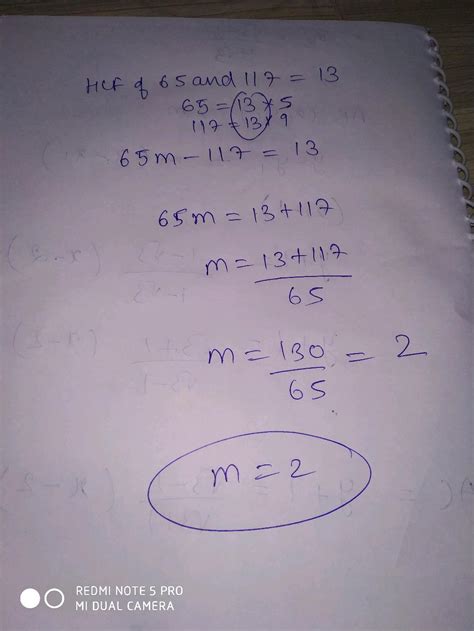 HCF of 65 and 117 = 13
65 = 13 × 5
117 = 13 × 9
65m - 117 = 13
65m = 13 + 117
m = 13 + 117
65
m = 130 = 2
65
m = 2
REDMI NOTE 5 PRO
MI DUAL CAMERA